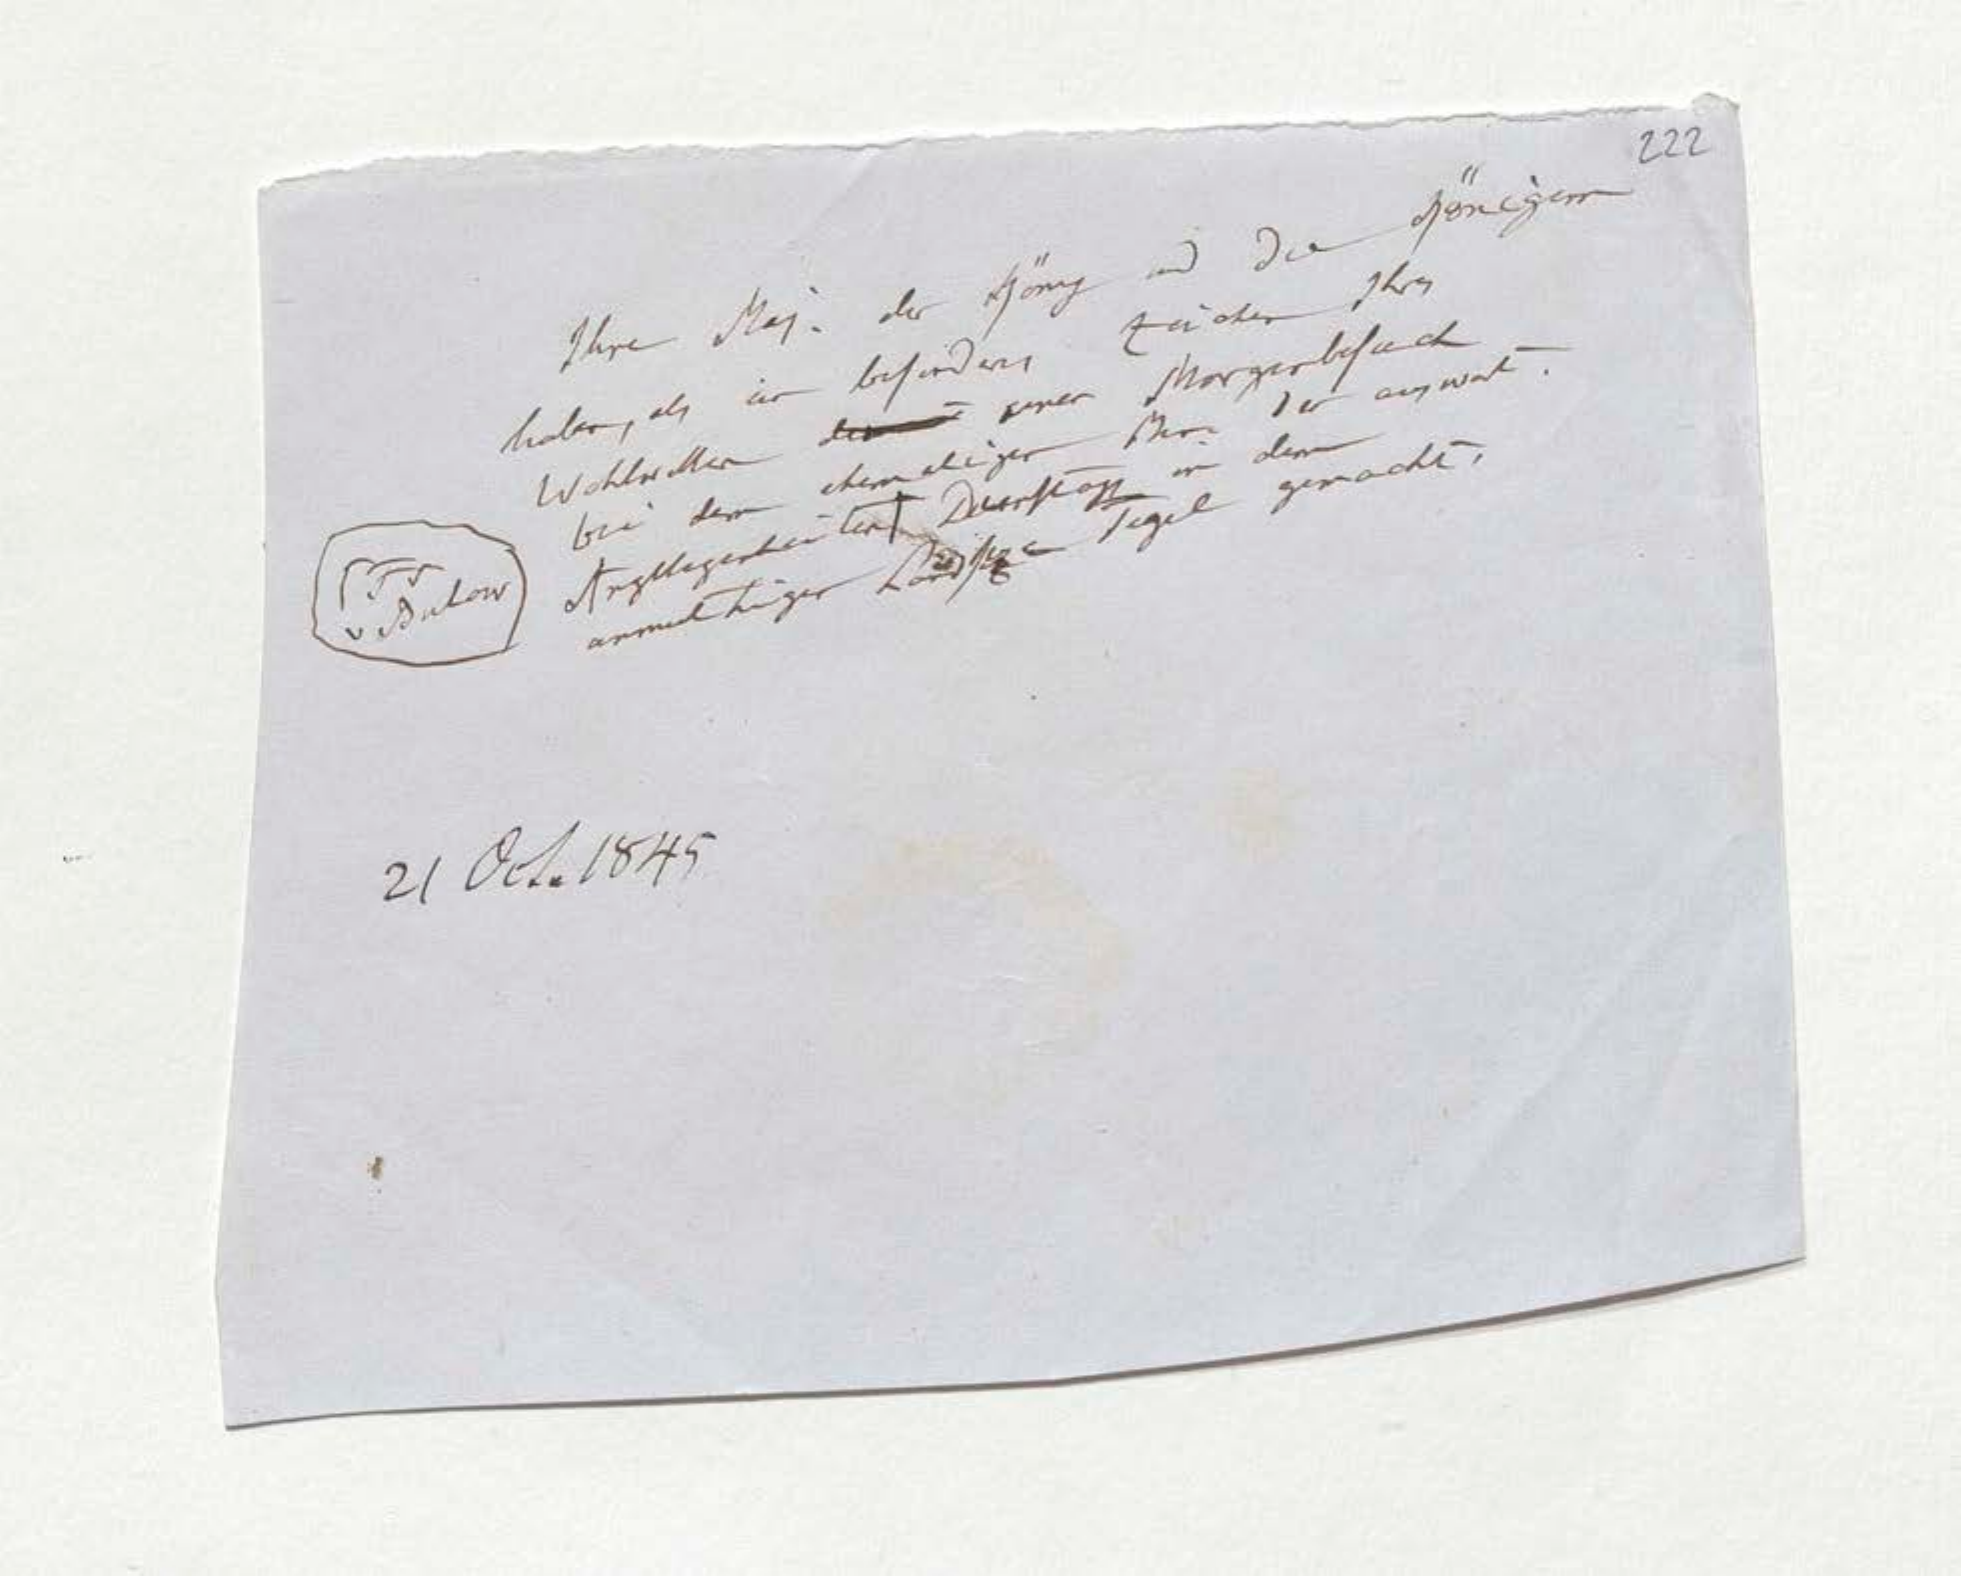 222
Ihre Maj. der König und die Königinn
haben, als ein besonderes Zeichen Ihres
Wohlwollen einen Morgenbesuch
bei dem ehemaligen Min. der auswärt.
Angelegenheiten Dienstags in dem
anmuthigen Landsitze Tegel gemacht.
v Bulow
21 Oct. 1845